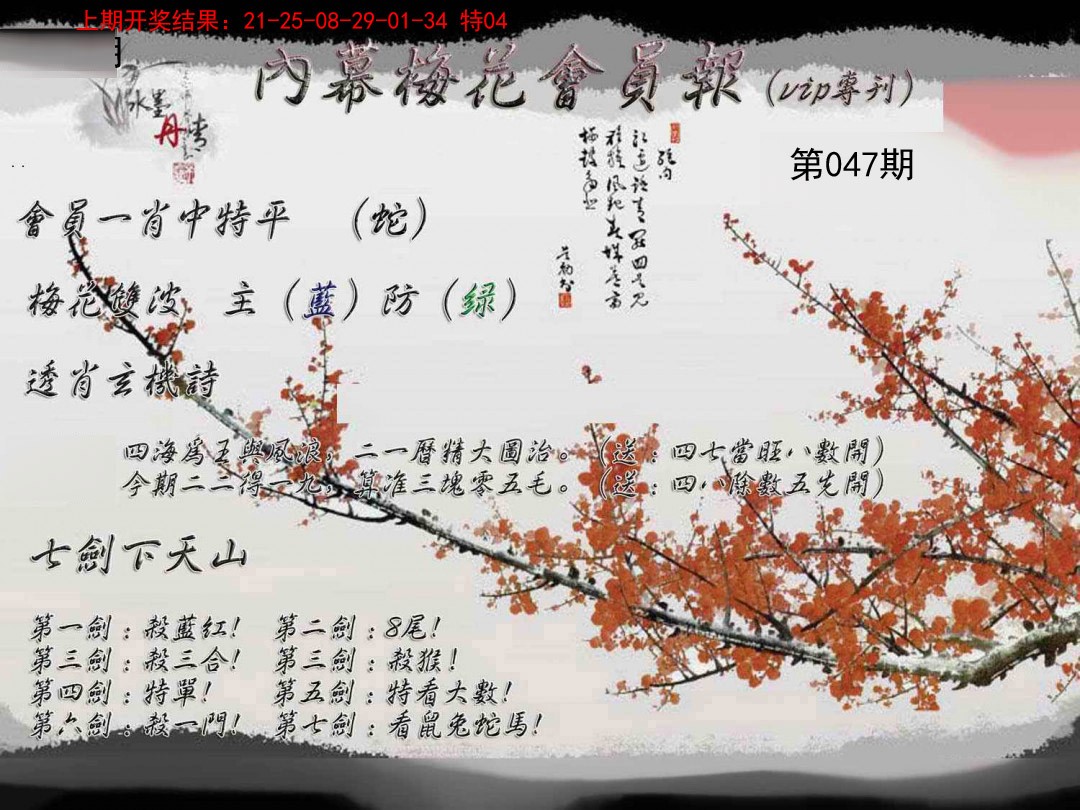 上期开奖结果：21-25-08-29-01-34 特04
內幕梅花會員報（vip專刊）
水墨
丹情
第047期
會員一肖中特平 （蛇）
梅花雙波 主（藍）防（绿）
透肖玄機詩
四海爲王與風浪，二一曆精大圖治。（送：四七當旺八數開）
今期二二得一九，算准三塊零五毛。（送：四八除數五先開）
七劍下天山
第一劍：殺藍紅！ 第二劍：8尾！
第三劍：殺三合！ 第三劍：殺猴！
第四劍：特單！ 第五劍：特看大數！
第六劍：殺一門！ 第七劍：看鼠兔蛇馬！